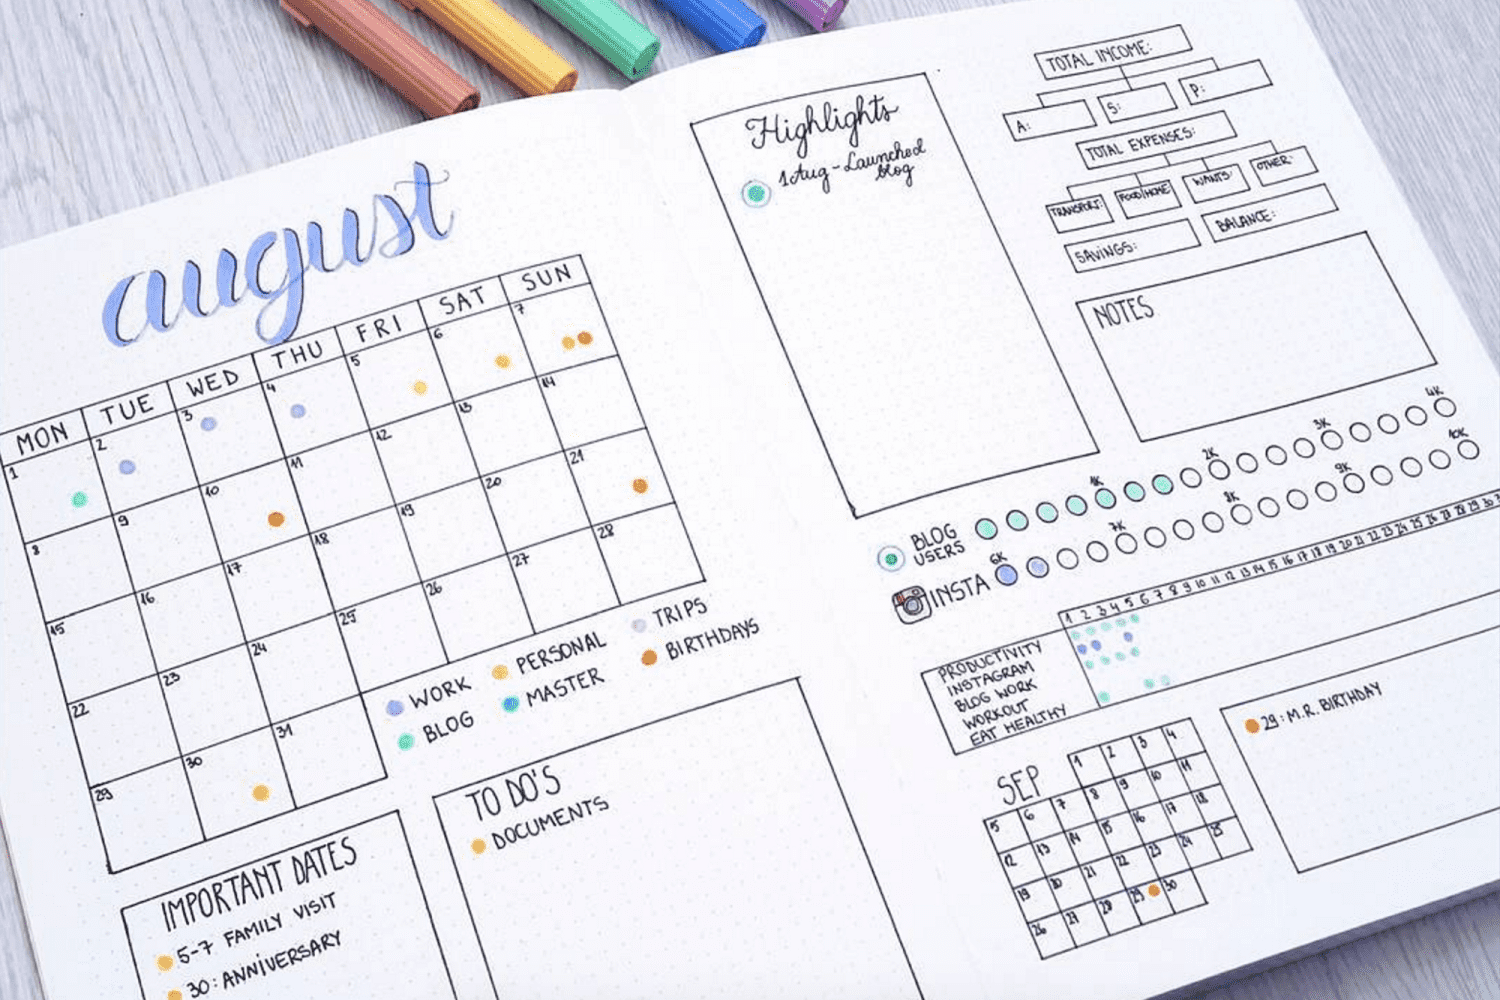 august
MON TUE WED THU FRI SAT SUN
1 2 3 4 5 6 7
8 9 10 11 12 13 14
15 16 17 18 19 20 21
22 23 24 25 26 27 28
29 30 31
WORK PERSONAL TRIPS
BLOG MASTER BIRTHDAYS
IMPORTANT DATES
5-7 FAMILY VISIT
30: ANNIVERSARY
TO DO'S
DOCUMENTS
Highlights
1 Aug - Launched
blog
TOTAL INCOME:
A: S: P:
TOTAL EXPENSES:
TRANSPORT: FOOD/HOME: WANTS: OTHER:
SAVINGS: BALANCE:
NOTES
1K 2K 3K 4K
BLOG
USERS
6K 7K 8K 9K 10K
INSTA
1 2 3 4 5 6 7 8 9 10 11 12 13 14 15 16 17 18 19 20 21 22 23 24 25 26 27 28 29 30
PRODUCTIVITY
INSTAGRAM
BLOG WORK
WORKOUT
EAT HEALTHY
SEP
1 2 3 4
5 6 7 8 9 10 11
12 13 14 15 16 17 18
19 20 21 22 23 24 25
26 27 28 29 30
29: M.R. BIRTHDAY